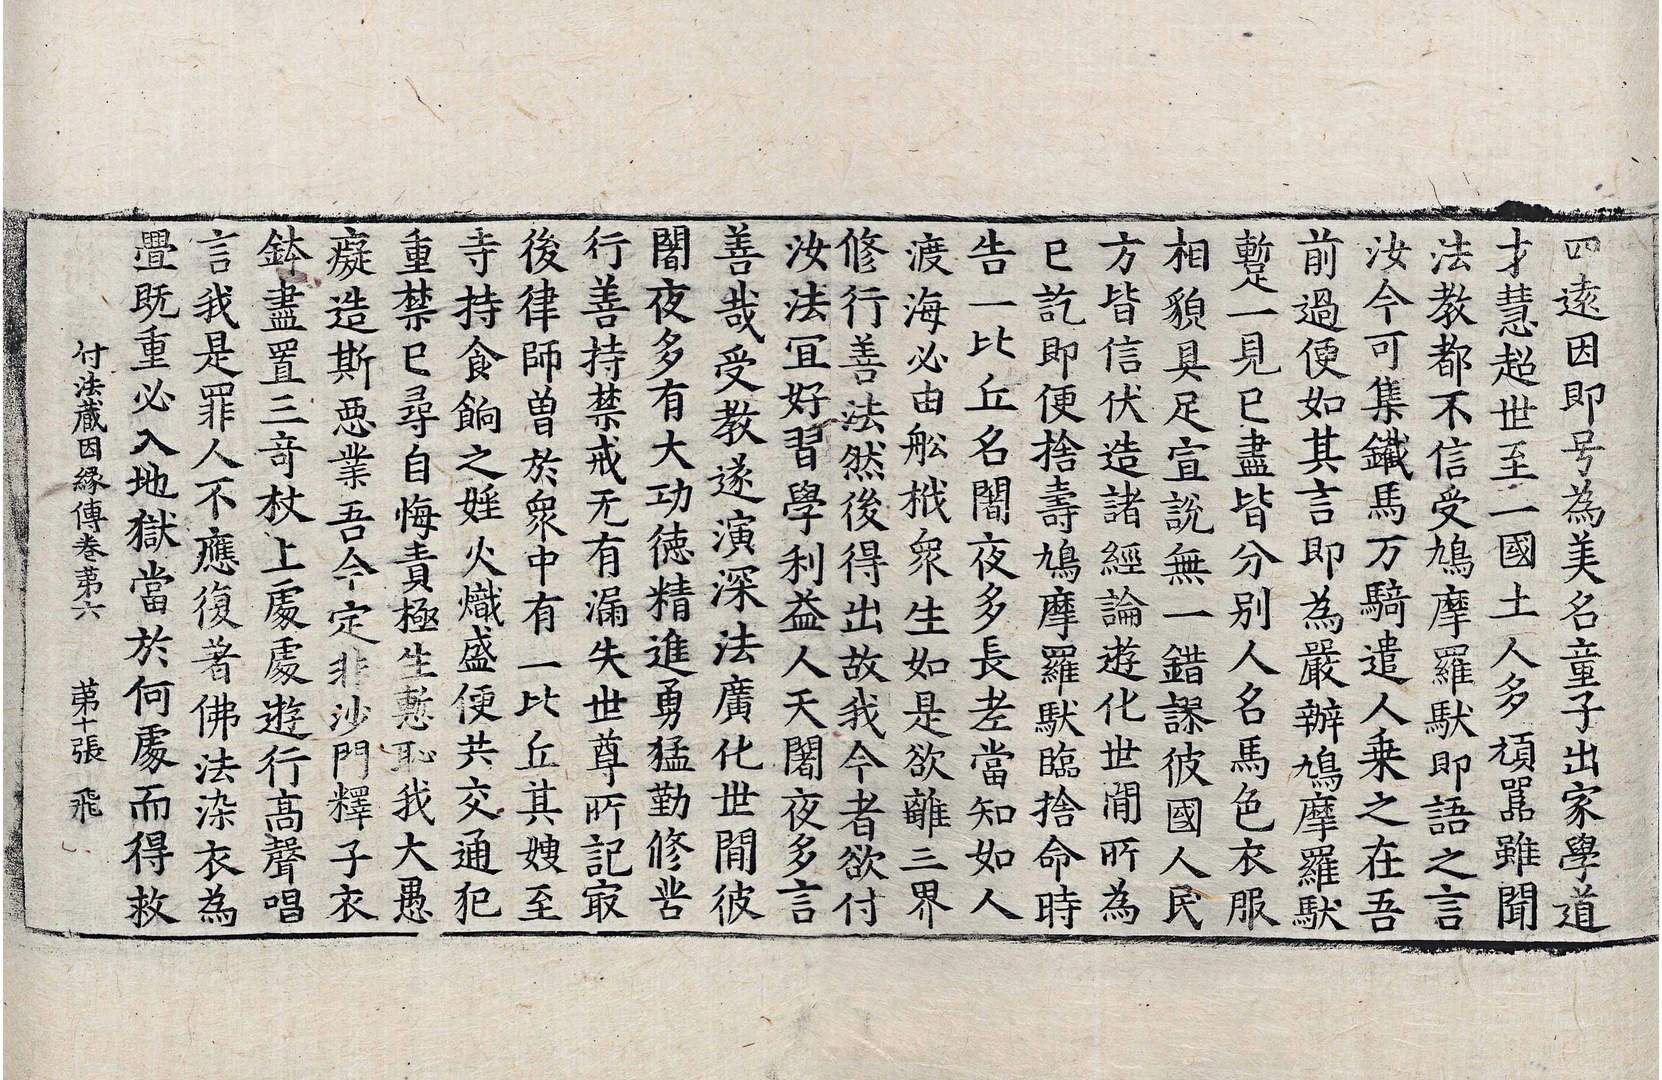 四遠因即号為美名童子出家學道
才慧超世至一國土人多頑嚚雖聞
法教都不信受鳩摩羅馱即語之言
汝今可集鐵馬万騎遣人乗之在吾
前過便如其言即為嚴辦鳩摩羅馱
蹔一見已盡皆分別人名馬色衣服
相貌具足宣説無一錯謬彼國人民
方皆信伏造諸經論遊化世閒所為
已訖即便捨壽鳩摩羅馱臨捨命時
告一比丘名闍夜多長老當知如人
渡海必由舩栰衆生如是欲離三界
修行善法然後得出故我今者欲付
汝法冝好習學利益人天闍夜多言
善哉受教遂演深法廣化世閒彼
闍夜多有大功徳精進勇猛勤修苦
行善持禁戒无有漏失世尊所記㝡
後律師曽於衆中有一比丘其嫂至
寺持食餉之婬火熾盛便共交通犯
重禁已尋自悔責極生慙恥我大愚
癡造斯悪業吾今定非沙門釋子衣
鉢盡置三竒杖上處處遊行髙聲唱
言我是罪人不應復著佛法染衣為
疊既重必入地獄當於何處而得救
付法藏因縁傳巻苐六 苐十張 飛